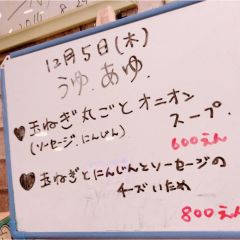 12月5日(木)
うゆ.あゆ.
♥玉ねぎ丸ごとオニオン
スープ.
(ソーセージ.にんじん)
600えん
♥玉ねぎとにんじんとソーセージの
チーズいため
800えん